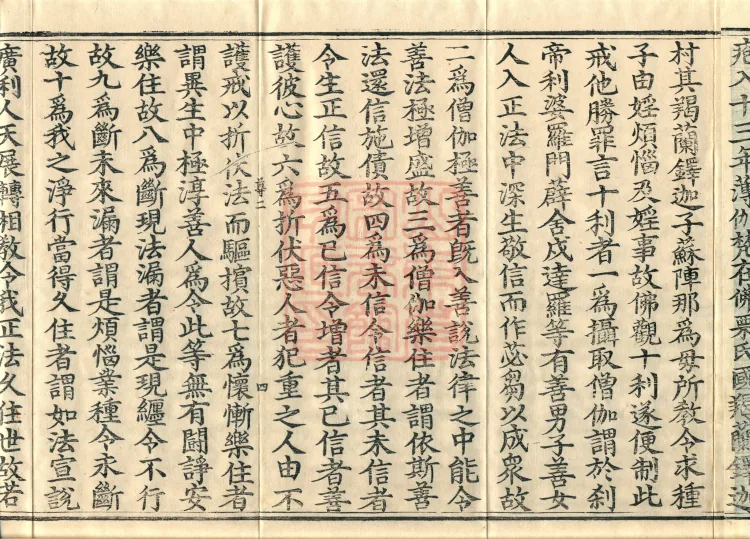 村其羯蘭鐸迦子蘇陣那為母所教令求種
子由婬煩惱及婬事故佛觀十利遂便制此
戒他勝罪言十利者一為攝取僧伽謂於刹
帝利婆羅門薜舍戍達羅等有善男子善女
人入正法中深生敬信而作苾芻以成衆故
二為僧伽極善者既入善說法律之中能令
善法極增盛故三為僧伽樂住者謂依斯善
法還信施債故四為未信令信者其未信者
令生正信故五為已信令增者其已信者善
護彼心故六為折伏惡人者犯重之人由不
尊二
四
護戒以折伏法而驅擯故七為懷慚樂住者
謂異生中極淳善人為令此等無有鬪諍安
樂住故八為斷現法漏者謂是現纏令不行
故九為斷未來漏者謂是煩惱業種令永斷
故十為我之淨行當得久住者謂如法宣說
廣利人天展轉相教令我正法久住世故若